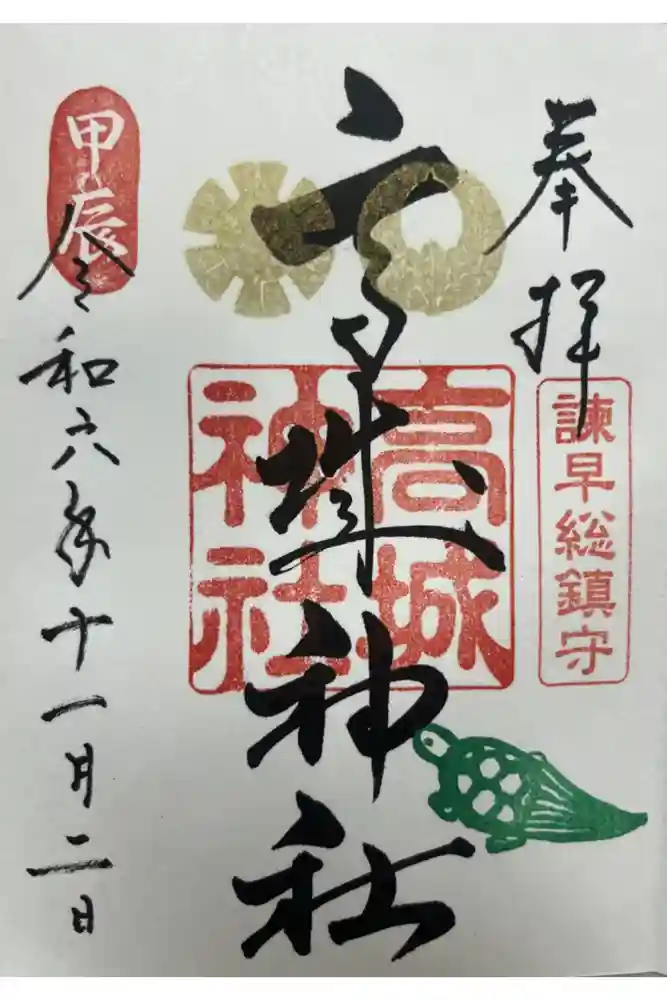 奉拝
諫早総鎮守
高城神社
高城神社
甲辰
令和六年十一月二日